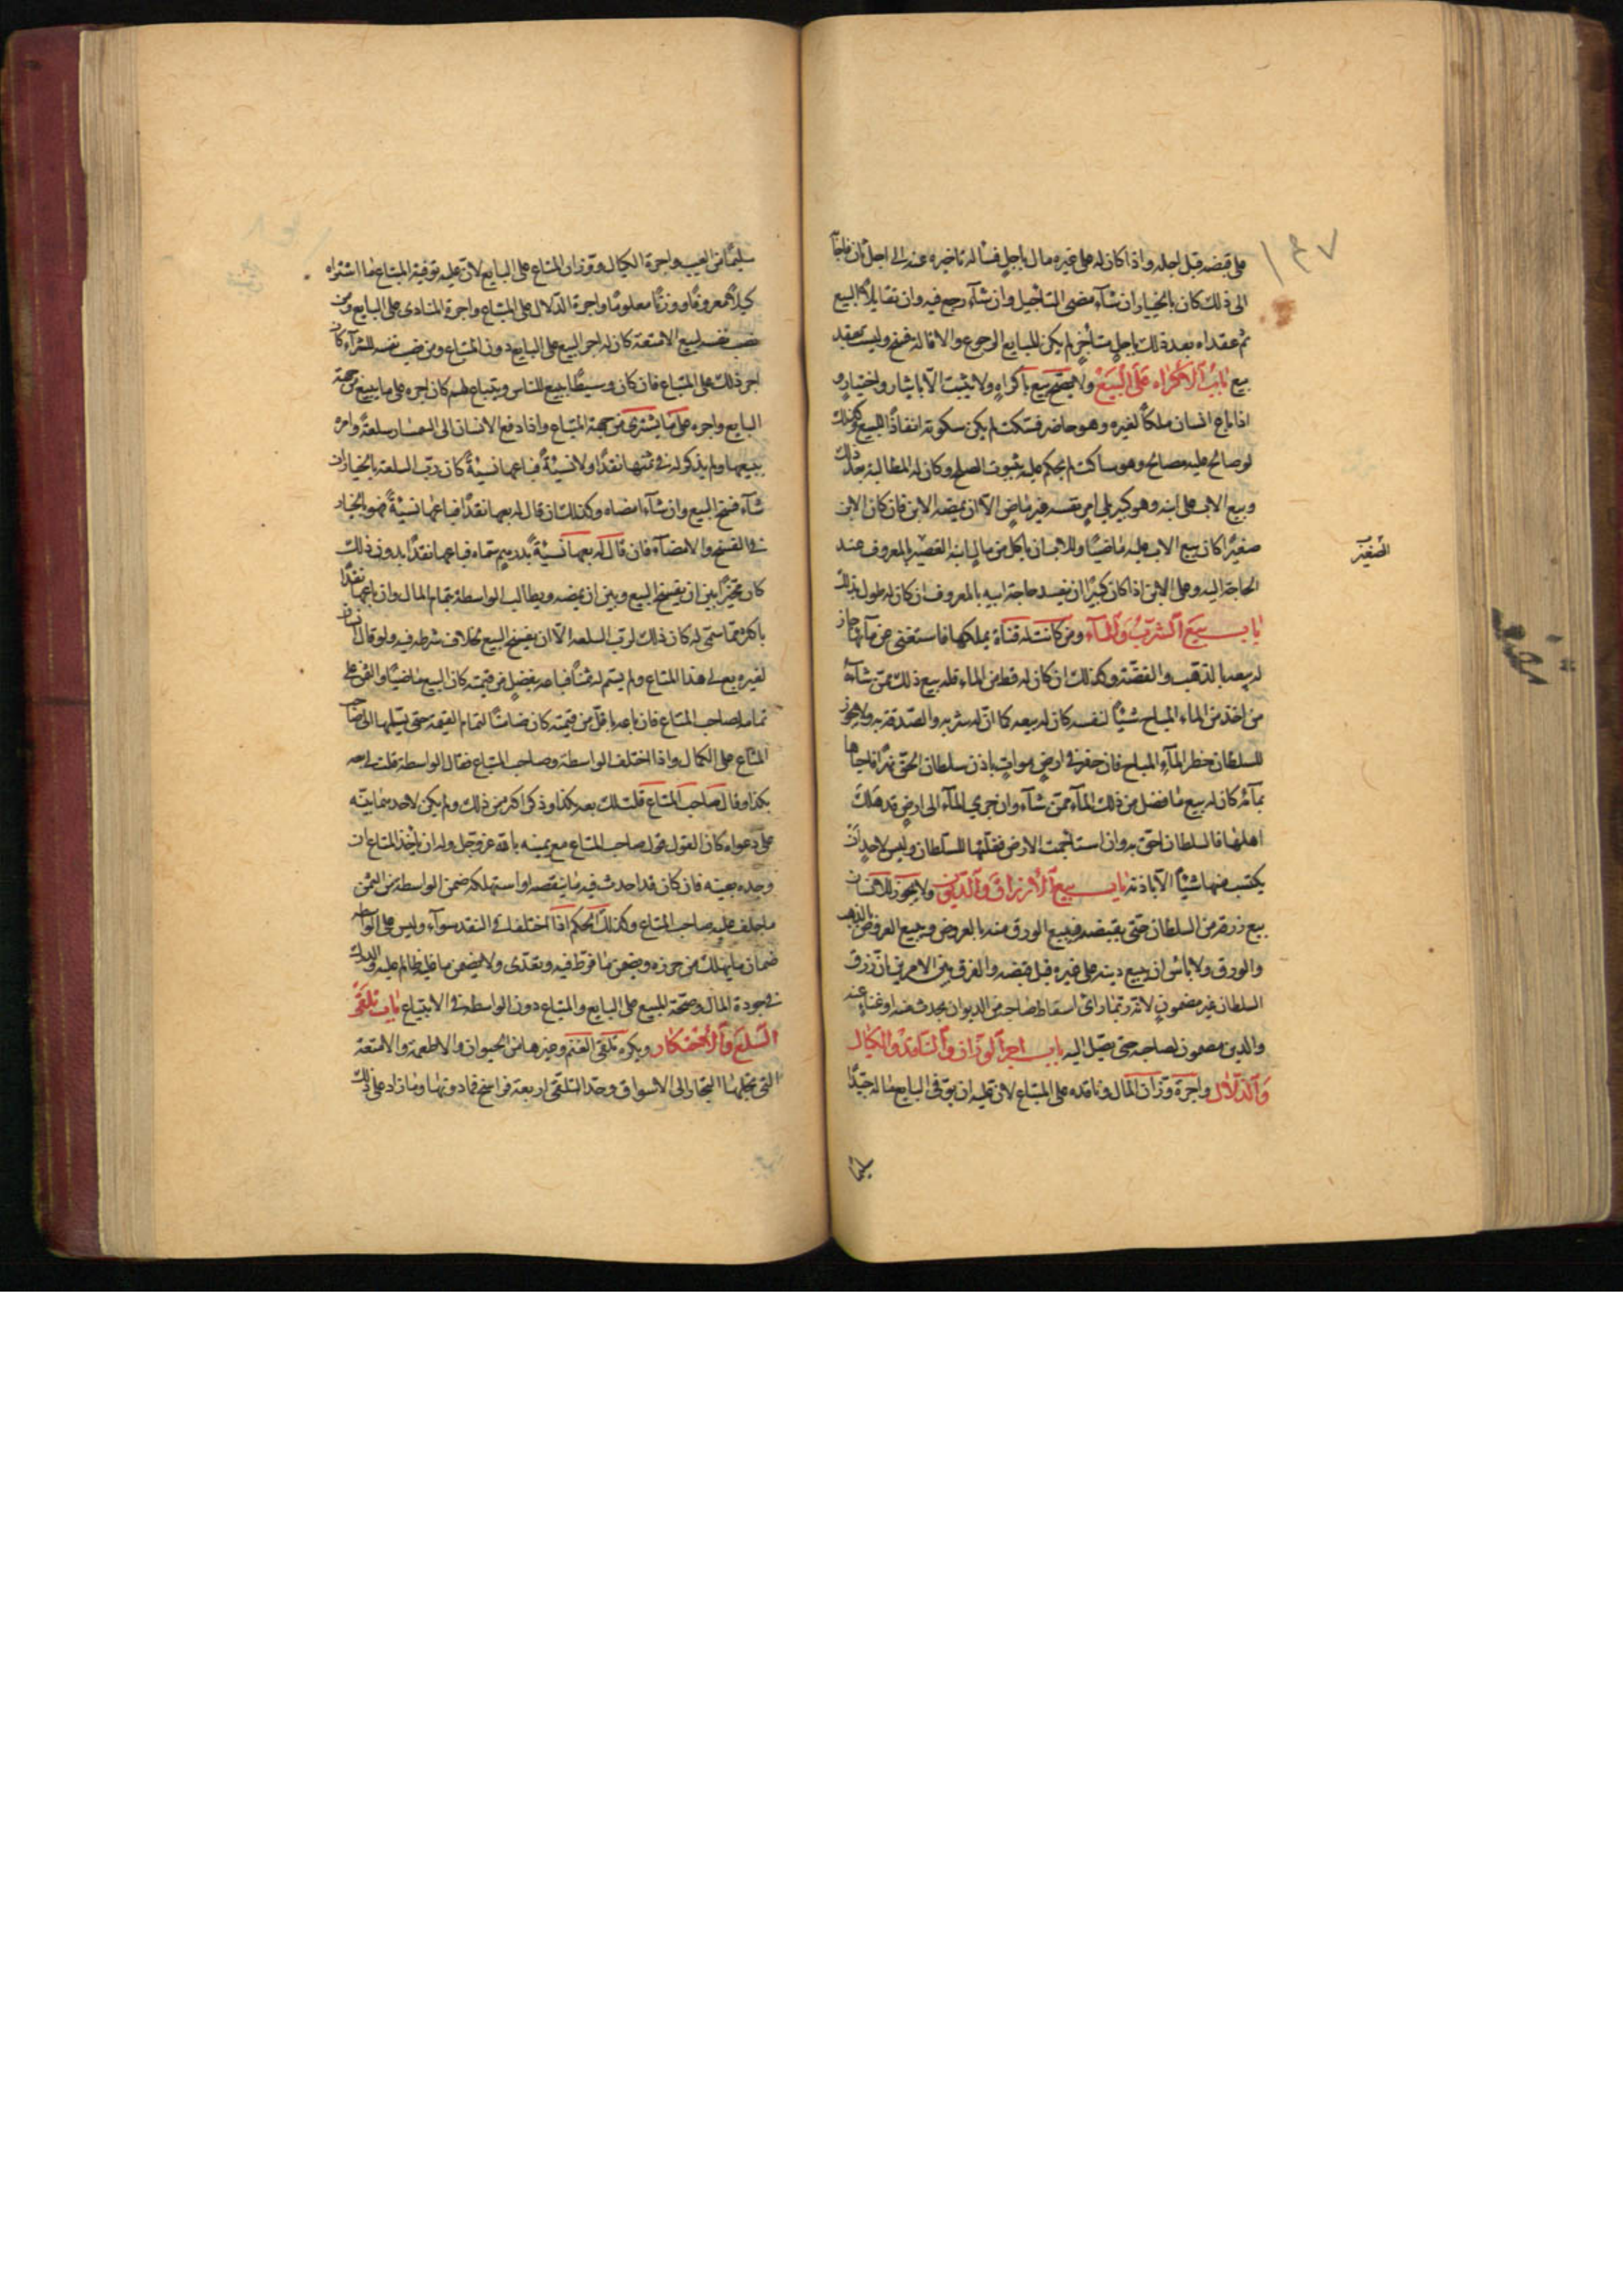 ١٤٧
على قبضه قبل اجله واذا كان له على غيره مال باجل فساله تاخيره عنه الى اجل ثان فاجابه
الى ذلك كان بالخيار ان شآء مضى التاجيل وان شآء رجع فيه وان تقايلا البيع
ثم عقداه بعد ذلك باجل متأخر لم يكن للبايع الرجوع والاقالة فسخ وليست بعقد
بيع باب الاكراه على البيع ولا يصح بيع باكراه ولا يثبت الا بايثار واختيار و
اذا باع انسان ملكا لغيره وهو حاضر فسكت لم يكن سكوته انفاذا للبيع وكذلك
لو صالح عليه مصالح وهو ساكت لم يحكم عليه بثبوت الصلح وكان له المطالبة بعد ذلك
وبيع الاب على ابنه وهو كبير يلي امر نفسه غير ماض الا ان يمضه الابن فان كان الابن
صغيرا كان بيع الاب عليه ماضيا وللانسان ياكل من مال ابنه الصغير بالمعروف عند
الصغير
الحاجة اليه وعلى الابن اذا كان كبيرا ان يسد حاجة ابيه بالمعروف ان كان له طول بذلك
باب بيع الشرب والمآء ومن كانت له قناة يملكها فاستغنى عن مآئها جاز
له بيعه بالذهب والفضة وكذلك ان كان له قط من الماء فله بيع ذلك ممن شآء
من اخذ من الماء المباح شيئا لنفسه كان له بيعه كما ان له شربه والصدقة به ولا يجوز
للسلطان حظر المآء المباح فان حفر في ارض موات باذن سلطان الحق نهرا فاحياها
بمآئه كان له بيع ما فضل من ذلك المآء ممن شآء وان جرى المآء الى ارض قد هلك
اهلها فالسلطان احق به وان استاجمت الارض فغلتها للسلطان وليس لاحد ان
يكتسب منها شيئا الا باذنه باب بيع الارزاق والديون ولا يجوز للانسان
بيع رزقه من السلطان حتى يقبضه فيبيع الورق منه بالعروض ويبيع العروض بالذهب
والورق ولا باس ان يبيع دينه على غيره قبل قبضه والفرق بين الامرين ان رزق
السلطان غير مضمون لانه ربما راى اسقاط صاحبه من الديوان بحدث منه او غناء عنه
والدين مضمون لصاحبه حتى يصل اليه باب اجر الوزان والناقد والكيال
والدلال واجرة وزان المال وناقده على المبتاع لان عليه ان يوفى البايع ماله جيدا
سليما
سليما من العيب واجرة الكيال ووزان المتاع على البايع لان عليه توفية المبتاع ما اشتراه
كيلا معروفا ووزنا معلوما واجرة الدلال على المبتاع واجرة المنادى على البايع ومن
نصب نفسه لبيع الامتعة كان له اجر البيع على البايع دون المبتاع ومن نصب نفسه للشرآء كان
اجر ذلك على المبتاع فان كان وسيطا يبيع للناس ويبتاع لهم كان اجره على ما يبيع من جهة
البايع واجره على ما يشترى من جهة المبتاع واذا دفع الانسان الى السمسار سلعة وامره
ببيعها ولم يذكر له في ثمنها نقدا ولا نسية فباعها نسية كان رب السلعة بالخيار ان
شآء فسخ البيع وان شآء امضاه وكذلك ان قال له بعها نقدا فباعها نسية فهو بالخيار
في الفسخ والامضآء فان قال له بعها نسية بدرهم سماه فباعها نقدا بدون ذلك
كان مخيرا بين ان يفسخ البيع وبين ان يمضه ويطالب الواسطة بتمام المال وان باعها نقدا
باكثر مما سمى له كان ذلك لرب السلعة الا ان يفسخ البيع بخلاف شرطه فيه ولو قال انسان
لغيره بع لى هذا المتاع ولم يسم له ثمنا فباعه بفضل من قيمته كان البيع ماضيا والثمن على
تمامه لصاحب المتاع فان باعه باقل من قيمته كان ضامنا لتمام القيمة حتى يسلمها الى صاحب
المتاع على الكمال واذا اختلف الواسطة وصاحب المتاع فقال الواسطة قلت لى بعه
بكذا وقال صاحب المتاع قلت لك بعه بكذا وذكر اكثر من ذلك ولم يكن لاحدهما بينه
على دعواه كان القول قول صاحب المتاع مع يمينه بالله عز وجل وله ان ياخذ المتاع ان
وجده بعينه فان كان قد احدث فيه ما ينقصه او استهلكه ضمن الواسطة من الثمن
ما حلف عليه صاحب المتاع وكذلك الحكم اذا اختلفا في النقد سوآء وليس على الواسطة
ضمان ما يهلك من حرزه ويضمن ما فرط فيه وتعدى ولا يضمن ما غلبه ظالم عليه والدرك
في جودة المال وصحة المبيع على البايع والمبتاع دون الواسطة في الابتياع باب تلقى
السلع والاحتكار ويكره تلقى الغنم وغيرها من الحيوان والاطعمة والامتعة
التى يجلبها التجار الى الاسواق وحد التلقى اربعة فراسخ فما دونها وما زاد على ذلك